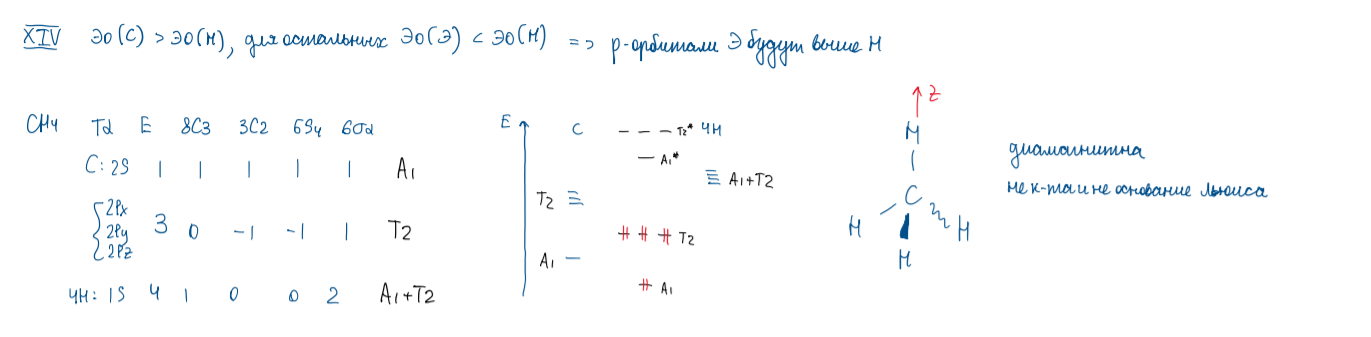 XIV ЭО(С) > ЭО(Н), для остальных ЭО(Э) < ЭО(Н) => p-орбитали Э будут выше Н
CH4 Td E 8C3 3C2 6S4 6σd
C: 2S 1 1 1 1 1 A1
2Px
2Py 3 0 -1 -1 1 T2
2Pz
4H: 1S 4 1 0 0 2 A1+T2
E C T2* 4H
A1*
A1+T2
T2
T2
A1
A1
Z
H
C
H H
H
диамагнитна
не к-та и не основание Льюиса